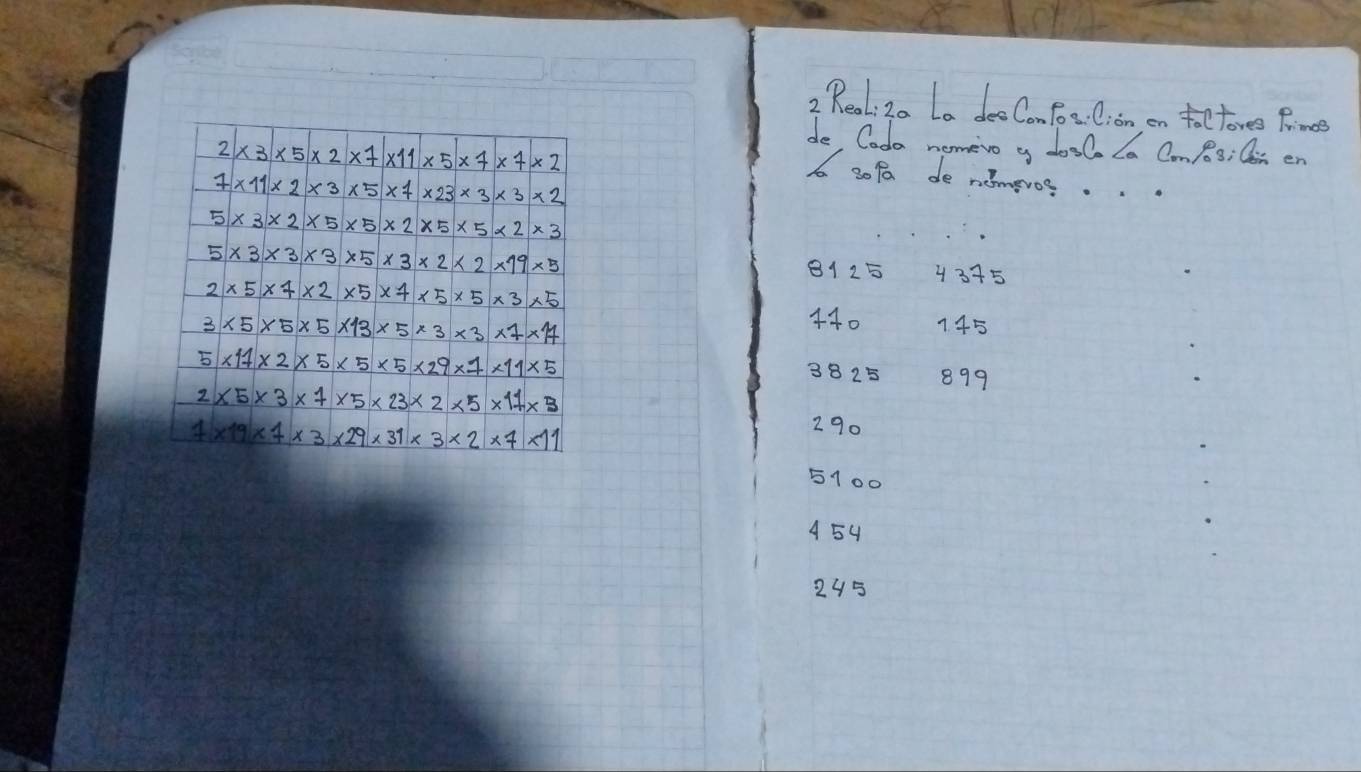 2×3×5×2×7×11×5×7×7×2
7×11×2×3×5×7×23×3×3×2
5×3×2×5×5×2×5×5×2×3
5×3×3×3×5×3×2×2×19×5
2×5×7×2×5×7×5×5×3×5
3×5×5×5×13×5×3×3×7×17
5×17×2×5×5×5×29×7×11×5
2×5×3×7×5×23×2×5×17×3
7×19×7×3×29×31×3×2×7×11
2 Realiza La desConPosiCión en factores Primos
de Cada nomero y bosCa La ConPosiCión en
la soPa de números . . .
8125 4375
770 175
3825 899
290
5100
154
245